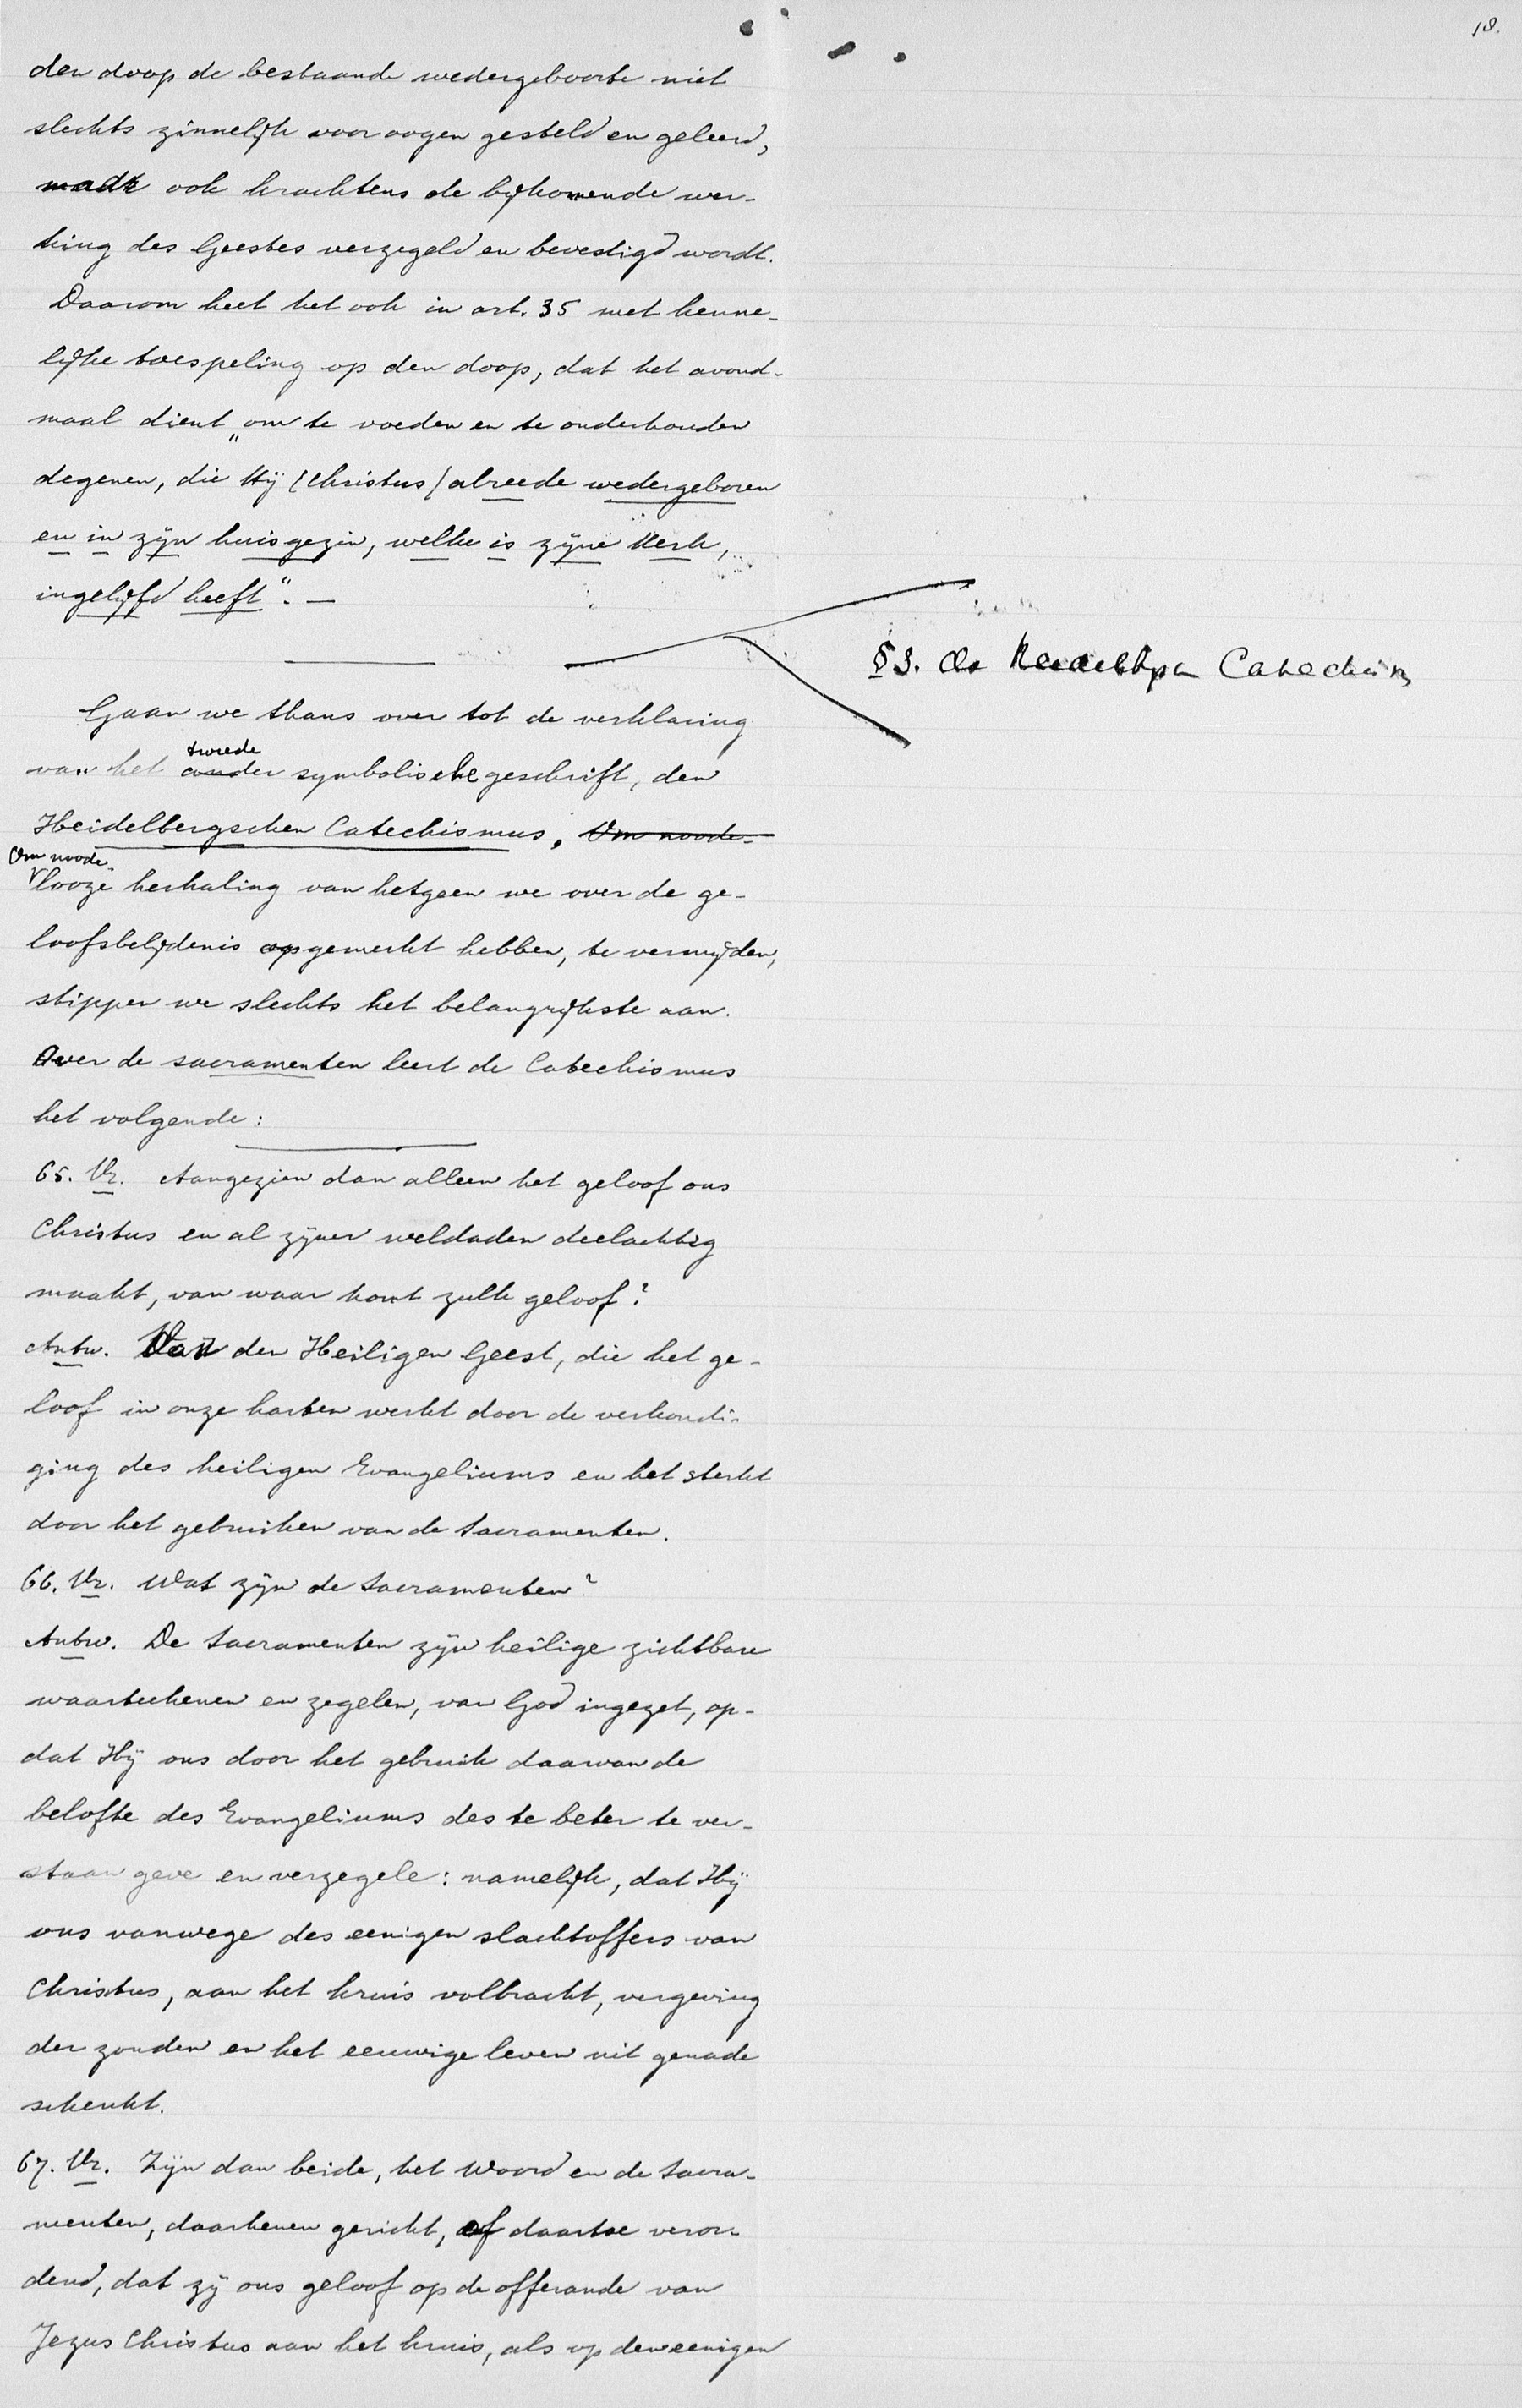 18.
den doop de bestaande wedergeboorte niet
slechts zinnelijk voor oogen gesteld en geleerd,
maar ook krachtens de bijkomende wer-
king des Geestes verzegeld en bevestigd wordt.
Daarom heet het ook in art. 35 met kenne-
lijke toespeling op den doop, dat het avond-
maal dient „om te voeden en te onderhouden
degenen, die Hij (Christus) alreede wedergeboren
en in zijn huisgezin, welke is zijne Kerk,
ingelijfd heeft". —
§3. De Heidelbgse Catechism
Gaan we thans over tot de verklaring
van het ander tweede symbolische geschrift, den
Heidelbergschen Catechismus. Om noode-
Om noode-
looze herhaling van hetgeen we over de ge-
loofsbelijdenis opgemerkt hebben, te vermijden,
stippen we slechts het belangrijkste aan.
Over de sacramenten leert de Catechismus
het volgende:
65. Vr. Aangezien dan alleen het geloof ons
Christus en al zijner weldaden deelachtig
maakt, van waar komt zulk geloof?
Antw. Van den Heiligen Geest, die het ge-
loof in onze harten werkt door de verkondi-
ging des heiligen Evangeliums en het sterkt
door het gebruiken van de Sacramenten.
66. Vr. Wat zijn de Sacramenten?
Antw. De Sacramenten zijn heilige zichtbare
waarteekenen en zegelen, van God ingezet, op-
dat Hij ons door het gebruik daarvan de
belofte des Evangeliums des te beter te ver-
staan geve en verzegele: namelijk, dat Hij
ons vanwege des eenigen slachtoffers van
Christus, aan het kruis volbracht, vergeving
der zonden en het eeuwige leven uit genade
schenkt.
67. Vr. Zijn dan beide, het Woord en de Sacra-
menten, daarhenen gericht, of daartoe veror-
dend, dat zij ons geloof op de offerande van
Jezus Christus aan het kruis, als op den eenigen